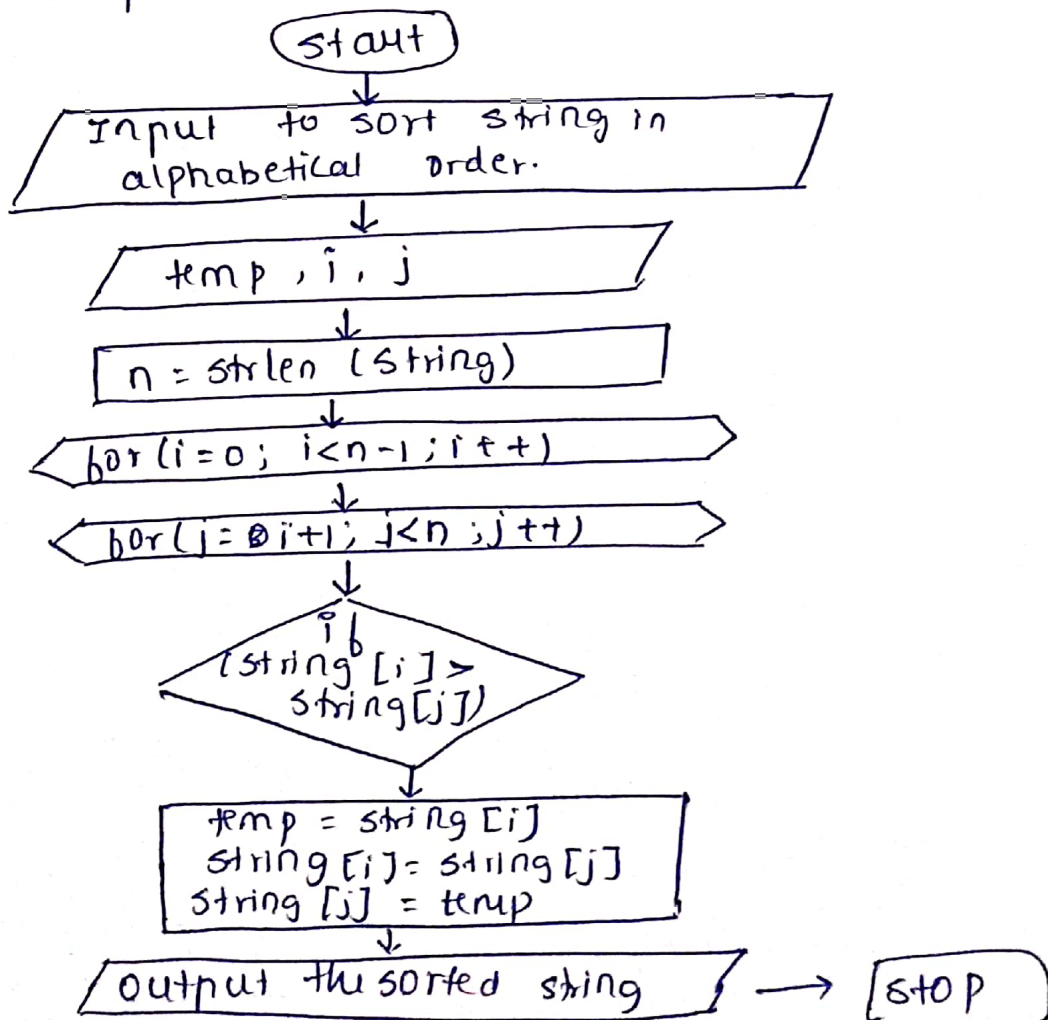 start
Input to sort string in
alphabetical order.
temp, i, j
n = strlen (string)
for (i = 0; i<n-1; i++)
for (j = i+1; j<n; j++)
if
(string [i] >
string[j])
temp = string [i]
string [i] = string [j]
string [j] = temp
output the sorted string
stop